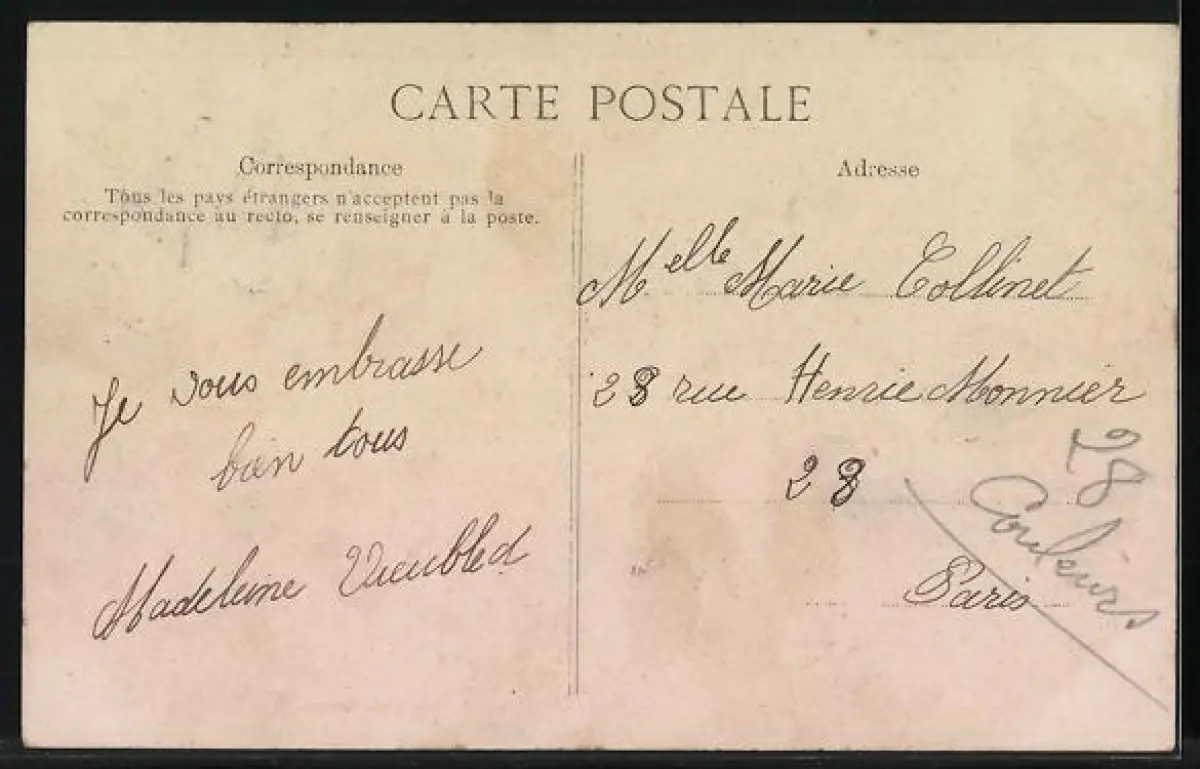 CARTE POSTALE
Correspondance
Tous les pays étrangers n'acceptent pas la
correspondance au recto, se renseigner à la poste.
Je vous embrasse
bien tous
Madeleine
Adresse
Melle Marie Collinet
28 rue Henrie Monnier
28
Paris
28
Couleurs